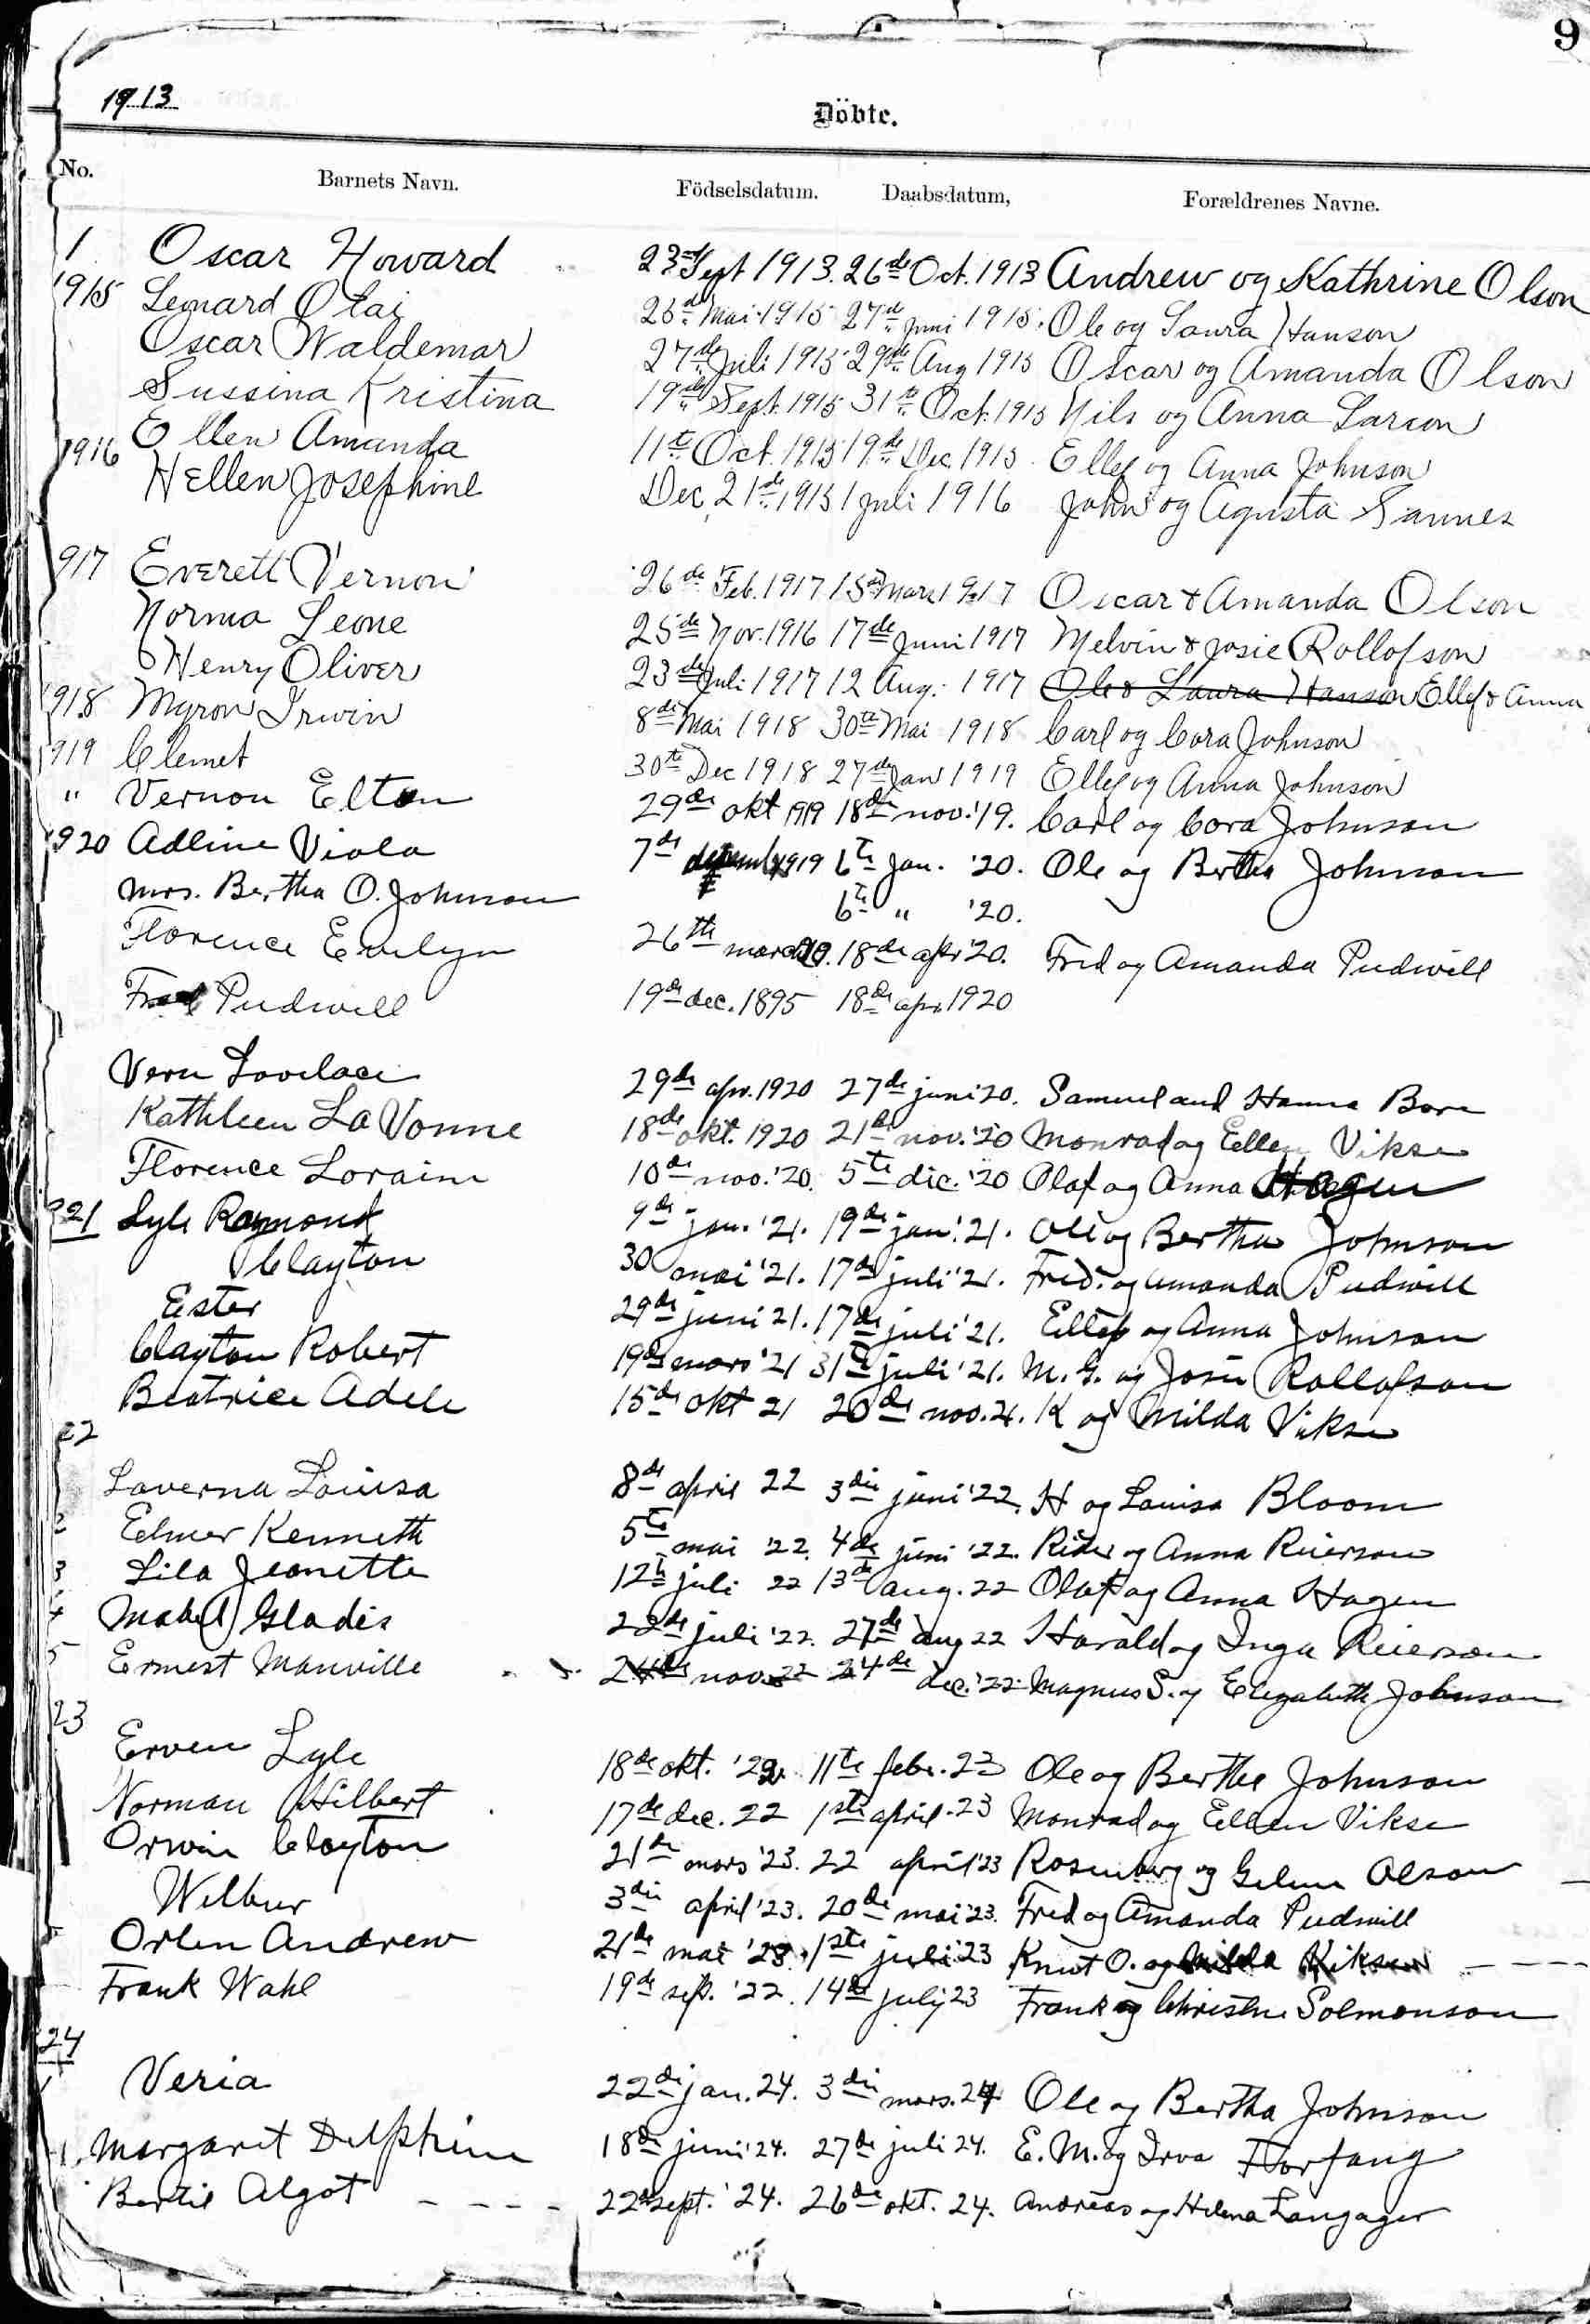 9
1913
Döbte.
No. Barnets Navn. Födselsdatum. Daabsdatum, Forældrenes Navne.
1 Oscar Howard 23de Sept 1913. 26de Oct. 1913 Andrew og Kathrine Olson
1915 Leonard Olai 25de Mai 1915 27de Juni 1915. Ole og Laura Hanson
Oscar Waldemar 27de Juli 1915 29de Aug 1915 Oscar og Amanda Olson
Sussina Kristina 19de Sept. 1915 31te Oct. 1915 Nils og Anna Larson
Ellen Amanda 11te Oct. 1915 19de Dec 1915 Ellef og Anna Johnson
1916 Hellen Josephine Dec 21de 1915 1 Juli 1916 John og Agusta Sannes
917 Everett Vernon 26de Feb. 1917 15de Mars 1917 Oscar & Amanda Olson
Norma Leone 25de Nov. 1916 17de Juni 1917 Melvin & Josie Rollofson
Henry Oliver 23de Juli 1917 12 Aug. 1917 Ole & Laura Hanson Ellef & Anna
1918 Myron Irwin 8de Mai 1918 30te Mai 1918 Carl og Cora Johnson
919 Clemet 30te Dec 1918 27de Jan 1919 Ellef og Anna Johnson
" Vernon Elton 29de okt 1919 18de nov. '19. Carl og Cora Johnson
1920 Adline Viola 7de 1919 6te Jan. '20. Ole og Bertha Johnson
Mrs. Bertha O. Johnson 6te " '20.
Florence Evelyn 26th march 18de apr '20. Fred og Amanda Pudwill
Fred Pudwill 19de dec. 1895 18de apr. 1920
Vern Lovelace 29de apr. 1920 27de juni '20. Samuel and Hanna Bore
Kathleen La Vonne 18de okt. 1920 21de nov. '20 Monrad og Ellen Vikse
Florence Loraine 10de nov. '20. 5te dec. '20 Olaf og Anna Hagen
21 Lyle Raymond 9de jan. '21. 19de jan. '21. Ole og Bertha Johnson
Clayton 30 mai '21. 17de juli '21. Fred. og Amanda Pudwill
Ester 29de juni 21. 17de juli '21. Ellef og Anna Johnson
Clayton Robert 19de mars '21 31te juli '21. M. G. og Josie Rollofson
Beatrice Adele 15de okt 21 20de nov. 21. K og Milda Vikse
22
Laverna Louisa 8de april 22 3die juni '22. H og Louisa Bloom
2 Elmer Kenneth 5te mai '22. 4de juni '22. Rider og Anna Reierson
3 Lila Jeanette 12te juli 22 13de aug. 22 Olaf og Anna Hagen
4 Mabel Gladis 22de juli '22. 27de aug 22 Harald og Inga Reierson
5 Ernest Manville 24de nov. 22 24de dec. '22 Magnus S. og Elizabeth Johnson
23
Erven Lyle 18de okt. '22 11te febr. 23 Ole og Berthe Johnson
Norman Hilbert 17de dec. 22 1ste april. 23 Monrad og Ellen Vikse
Orwin Clayton 21de mars '23. 22 april '23 Rosenberg og Olson
Wilbur 3die april '23. 20de mai '23. Fred og Amanda Pudwill
Orlen Andrew 21de mai '23. 1ste juli '23 Knut O. og Milda Viksen
Frank Wahl 19de sept. '22. 14de july 23 Frank og Christine Solmonson
'24
1 Veria 22de jan. 24. 3die mars. 24 Ole og Bertha Johnson
Margaret Delphine 18de juni '24. 27de juli 24. E. M. og Irva Torfang
Bertil Algot 22de sept. '24. 26de okt. 24. Andreas og Helena Langager